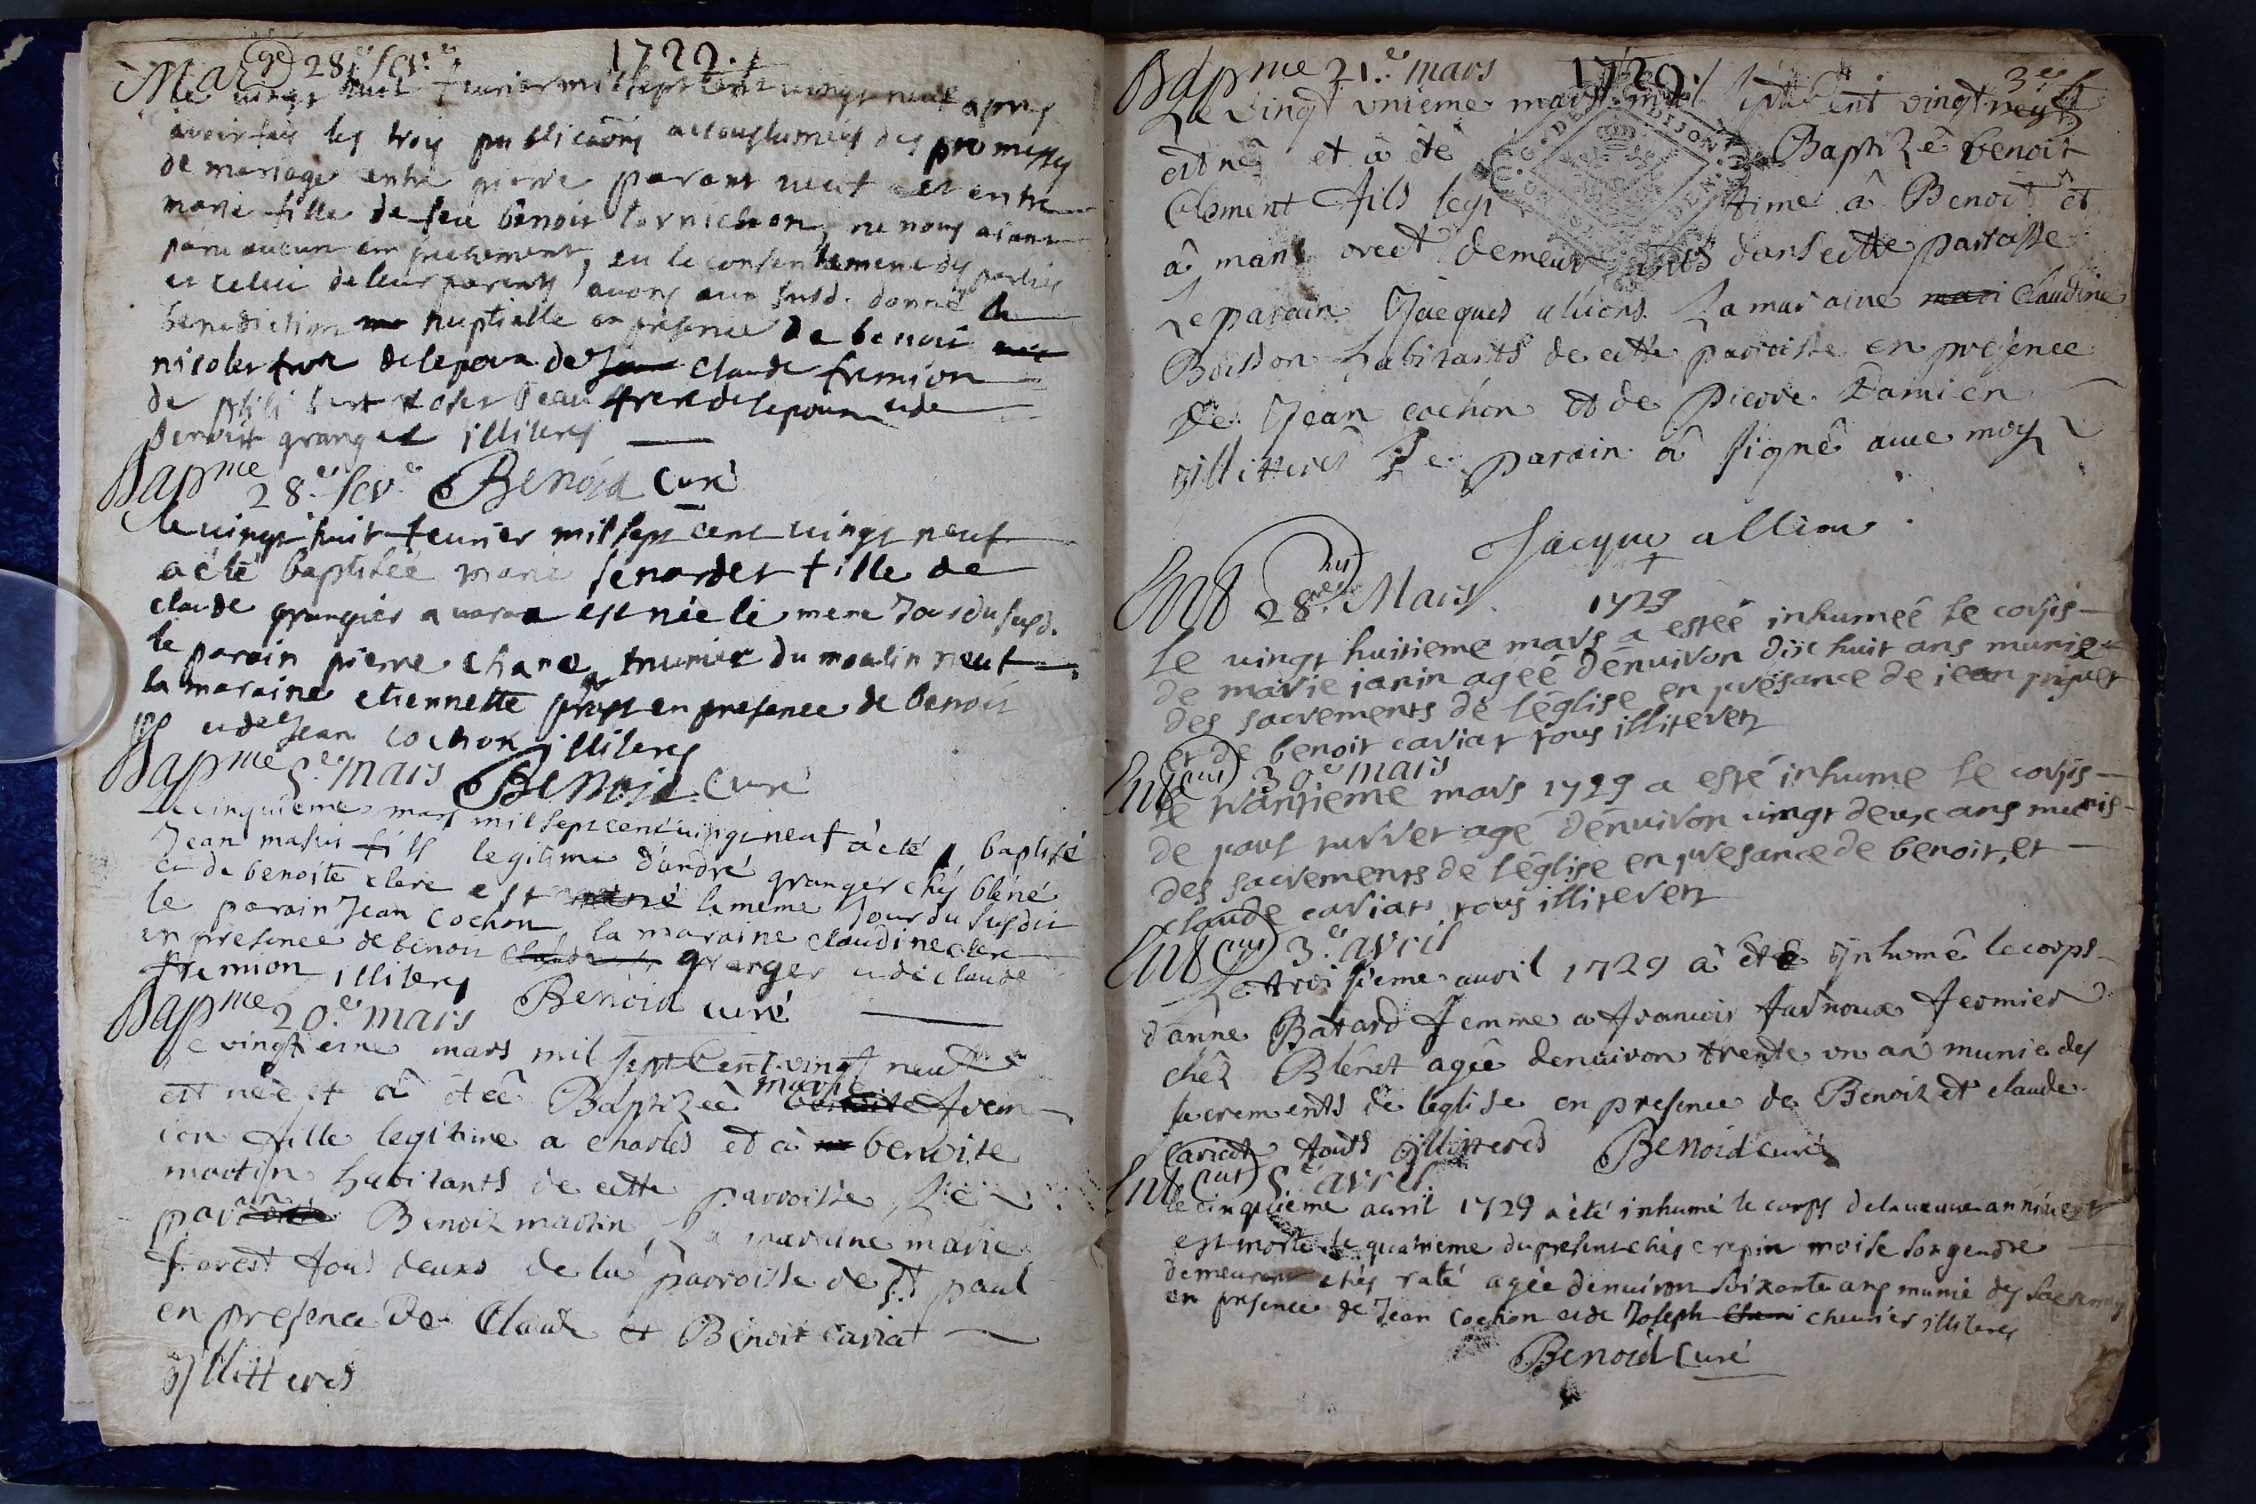 Mar(ge) 28e fev.e 1729.
le vingt huit feurier mil sept cent vingt neuf apres
avoir fait les trois publications accoustumées des promesses
de mariage entre pierre parant veuf et entre
marie fille de feu benoit cornichon, ne nous aiant
paru aucun empechement, eu le consentement des parties
et celui de leur parents avons aux susd. donné la
benediction nuptialle en presence de benoit
nicolet frere de lepoux de claude fremion
de philibert nolet beau frere de lepoux et de
benoist granger illiteres
Bapme 28.e fev.e Benoid Curé
le vingt huit feurier mil sept cent vingt neuf
a été baptisée marie senardet fille de
claude grangier a est née le meme Jour du susd.
le parain pierre chane munier du moulin neuf
la maraine etiennette en presence de benoit
et de Jean cochon illiteres
Bapme 5.e mars Benoid Curé
Le cinquieme mars mil sept cent vingt neuf à été baptisé
Jean masuis fils legitime d'andré granger chés bléné
et de benoite clere est né le meme Jour du susdit
le parain Jean cochon la maraine claudine clere
en presence de benoit granger et de claude
fremion illiteres
Bapme 20.e mars Benoid curé
Le vingtieme mars mil sept Cent vingt neuf
est née et â étée Baptizeê marie frem
ion fille legitime a charles et à benoite
martin habitants de cette parroisse Le
parain Benoit martin, La marainne marie
forest tous deux de la parroisse de St paul
en presence De Claude et Benoit Caviat
jllitteres
Bapme 21.e mars 1729. 3e
Le vingt unieme mars mil sept Cent vingt neuf
est né et â été Baptizê benoit
Clement fils legitime â Benoit et
â marie demeurants dans cette parroisse
Le parain Jacques allions La maraine mari Claudine
Boisson habitants de cette parroisse en presence
De Jean cochon et de pierre Damien
jllitteres Le parain â signê avec moy
Jacque allion
Ent(eus) 28e. Mars 1729
Le vingt huitieme mars a esteé inhumeé le corps
de marie janin ageé denuiron dix huit ans munie
des sacrements de l'église en présance de jean
et de benoit caviat tous illiteretz
Ent(eus) 30.e mars
le trantieme mars 1729 a esté inhume le corps
de agé denuiron vingt deux ans munis
des sacrements de l'église en présance de benoit, et
claude caviat tous illiteretz
Ent(eus) 3.e avril
Le troisieme auril 1729 â été jnhumê le corps
d'anne Batard femme a francois farnoux fermier
chéz Blénet agêe denuiron trente un an munie des
sacrements de leglise en presence de Benoit et claude
Caviat touts jllitterés Benoid curé
Ent(eus) 5.e avril
le cinquieme auril 1729 a été inhumé le corps de la veuve
est morte le quatrieme du present chés crepin moise son gendre
demeurant chés raté agée denuiron soixante ans munie des sacremens
en presence de Jean cochon et de Joseph chevrier illiteres
Benoid Curé